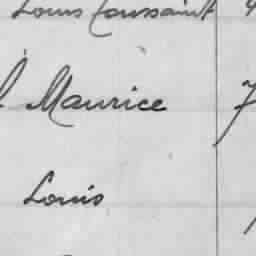 Louis Toussaint
Maurice 7
Louis